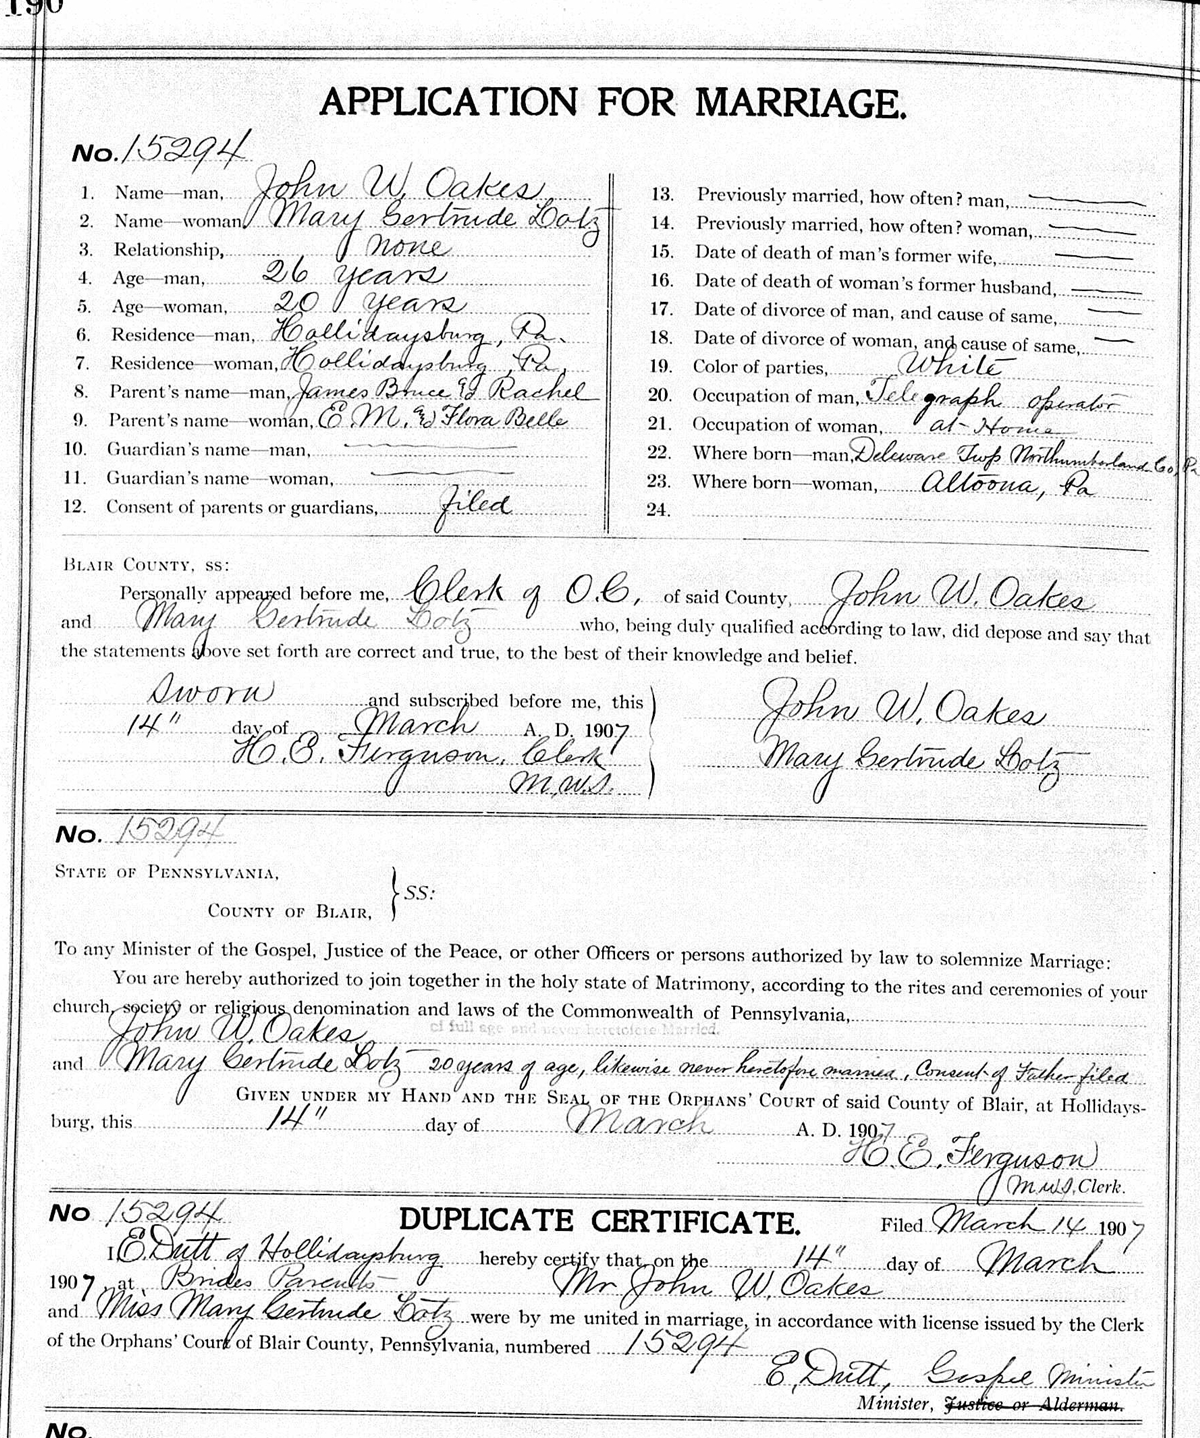 190
APPLICATION FOR MARRIAGE.
No. 15294
1. Name—man, John W. Oakes
2. Name—woman, Mary Gertrude Lotz
3. Relationship, none
4. Age—man, 26 years
5. Age—woman, 20 years
6. Residence—man, Hollidaysburg, Pa.
7. Residence—woman, Hollidaysburg, Pa.
8. Parent's name—man, James Bruce & Rachel
9. Parent's name—woman, E. M. & Flora Belle
10. Guardian's name—man,
11. Guardian's name—woman,
12. Consent of parents or guardians, filed
13. Previously married, how often? man,
14. Previously married, how often? woman,
15. Date of death of man's former wife,
16. Date of death of woman's former husband,
17. Date of divorce of man, and cause of same,
18. Date of divorce of woman, and cause of same,
19. Color of parties, White
20. Occupation of man, Telegraph operator
21. Occupation of woman, at Home
22. Where born—man, Deleware Twp Northumberland Co, Pa
23. Where born—woman, Altoona, Pa
24.
BLAIR COUNTY, SS:
Personally appeared before me, Clerk of O.C, of said County, John W. Oakes
and Mary Gertrude Lotz who, being duly qualified according to law, did depose and say that
the statements above set forth are correct and true, to the best of their knowledge and belief.
Sworn and subscribed before me, this
14" day of March A. D. 1907
H. E. Ferguson, Clerk
M.W.S.
John W. Oakes
Mary Gertrude Lotz
No. 15294
STATE OF PENNSYLVANIA,
COUNTY OF BLAIR, } SS:
To any Minister of the Gospel, Justice of the Peace, or other Officers or persons authorized by law to solemnize Marriage:
You are hereby authorized to join together in the holy state of Matrimony, according to the rites and ceremonies of your
church, society or religious denomination and laws of the Commonwealth of Pennsylvania,
John W. Oakes of full age and never heretofore Married.
and Mary Gertrude Lotz 20 years of age, likewise never heretofore married, Consent of Father filed
GIVEN UNDER MY HAND AND THE SEAL OF THE ORPHANS' COURT of said County of Blair, at Hollidays-
burg, this 14" day of March A. D. 1907
H. E. Ferguson
M.W.S, Clerk.
No 15294 DUPLICATE CERTIFICATE. Filed March 14 1907
I E. Dutt of Hollidaysburg hereby certify that, on the 14" day of March
1907 at Brides Parents Mr John W. Oakes
and Miss Mary Gertrude Lotz were by me united in marriage, in accordance with license issued by the Clerk
of the Orphans' Court of Blair County, Pennsylvania, numbered 15294
E. Dutt, Gospel Minister
Minister, Justice or Alderman.
No.